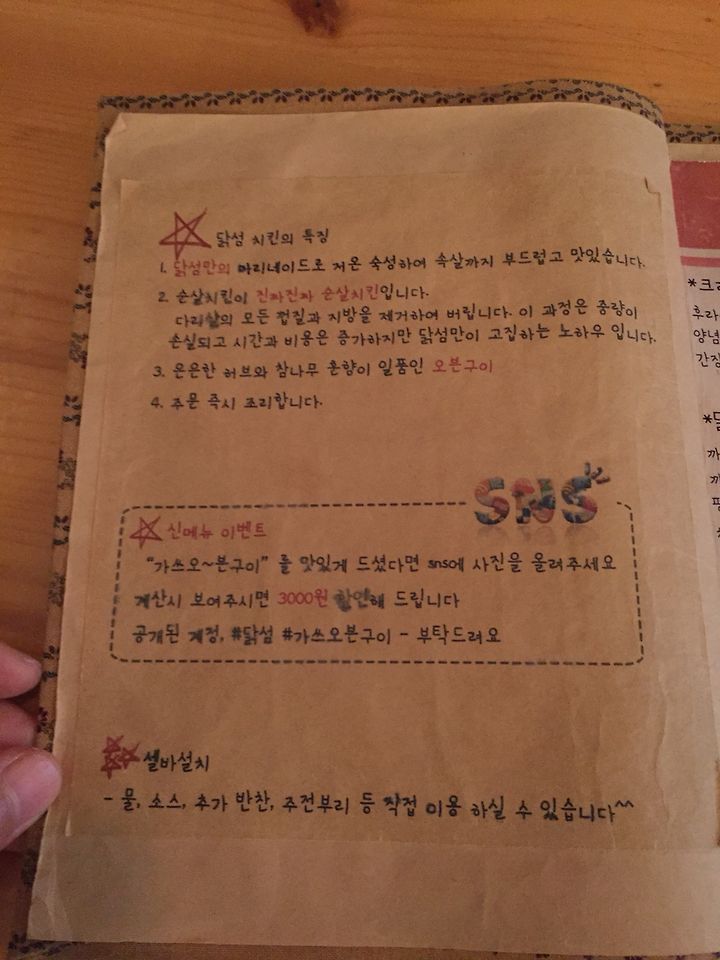 닭섬 치킨의 특징
1. 닭섬만의 마리네이드로 저온 숙성하여 속살까지 부드럽고 맛있습니다.
2. 순살치킨이 진짜진짜 순살치킨입니다.
다리살의 모든 껍질과 지방을 제거하여 버립니다. 이 과정은 중량이
손실되고 시간과 비용은 증가하지만 닭섬만이 고집하는 노하우 입니다.
3. 은은한 허브와 참나무 훈향이 일품인 오븐구이
4. 주문 즉시 조리합니다.
SNS
신메뉴 이벤트
"가쓰오~븐구이" 를 맛있게 드셨다면 sns에 사진을 올려주세요
계산시 보여주시면 3000원 할인해 드립니다
공개된 계정, #닭섬 #가쓰오븐구이 - 부탁드려요
셀바설치
- 물, 소스, 추가 반찬, 주전부리 등 직접 이용 하실 수 있습니다^^
후라
양념
간장